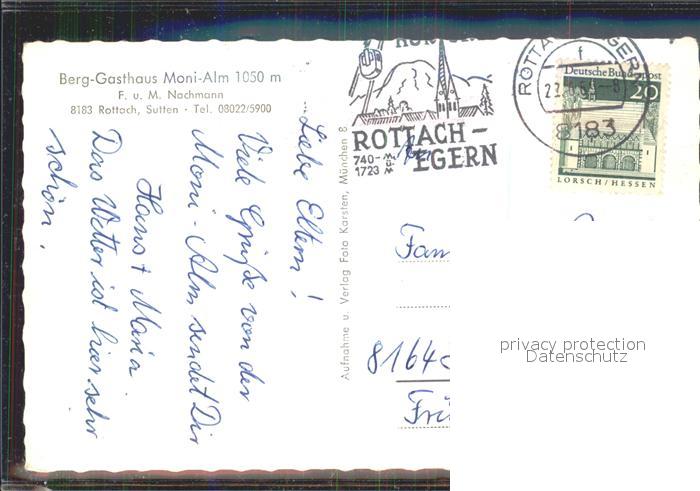 Berg-Gasthaus Moni-Alm 1050 m
F. u. M. Nachmann
8183 Rottach, Sutten · Tel. 08022/5900
Liebe Eltern!
Viele Grüße von der
Moni-Alm sendet Dir
Hans + Maria
Das Wetter ist hier sehr
schön.
Aufnahme u. Verlag Foto Karsten, München 8
ROTTACH-
EGERN
740-
1723 m
ü
M
ROTTA
GERN
f
8183
Deutsche Bundespost
20
LORSCH/HESSEN
Fam
8164
privacy protection
Datenschutz